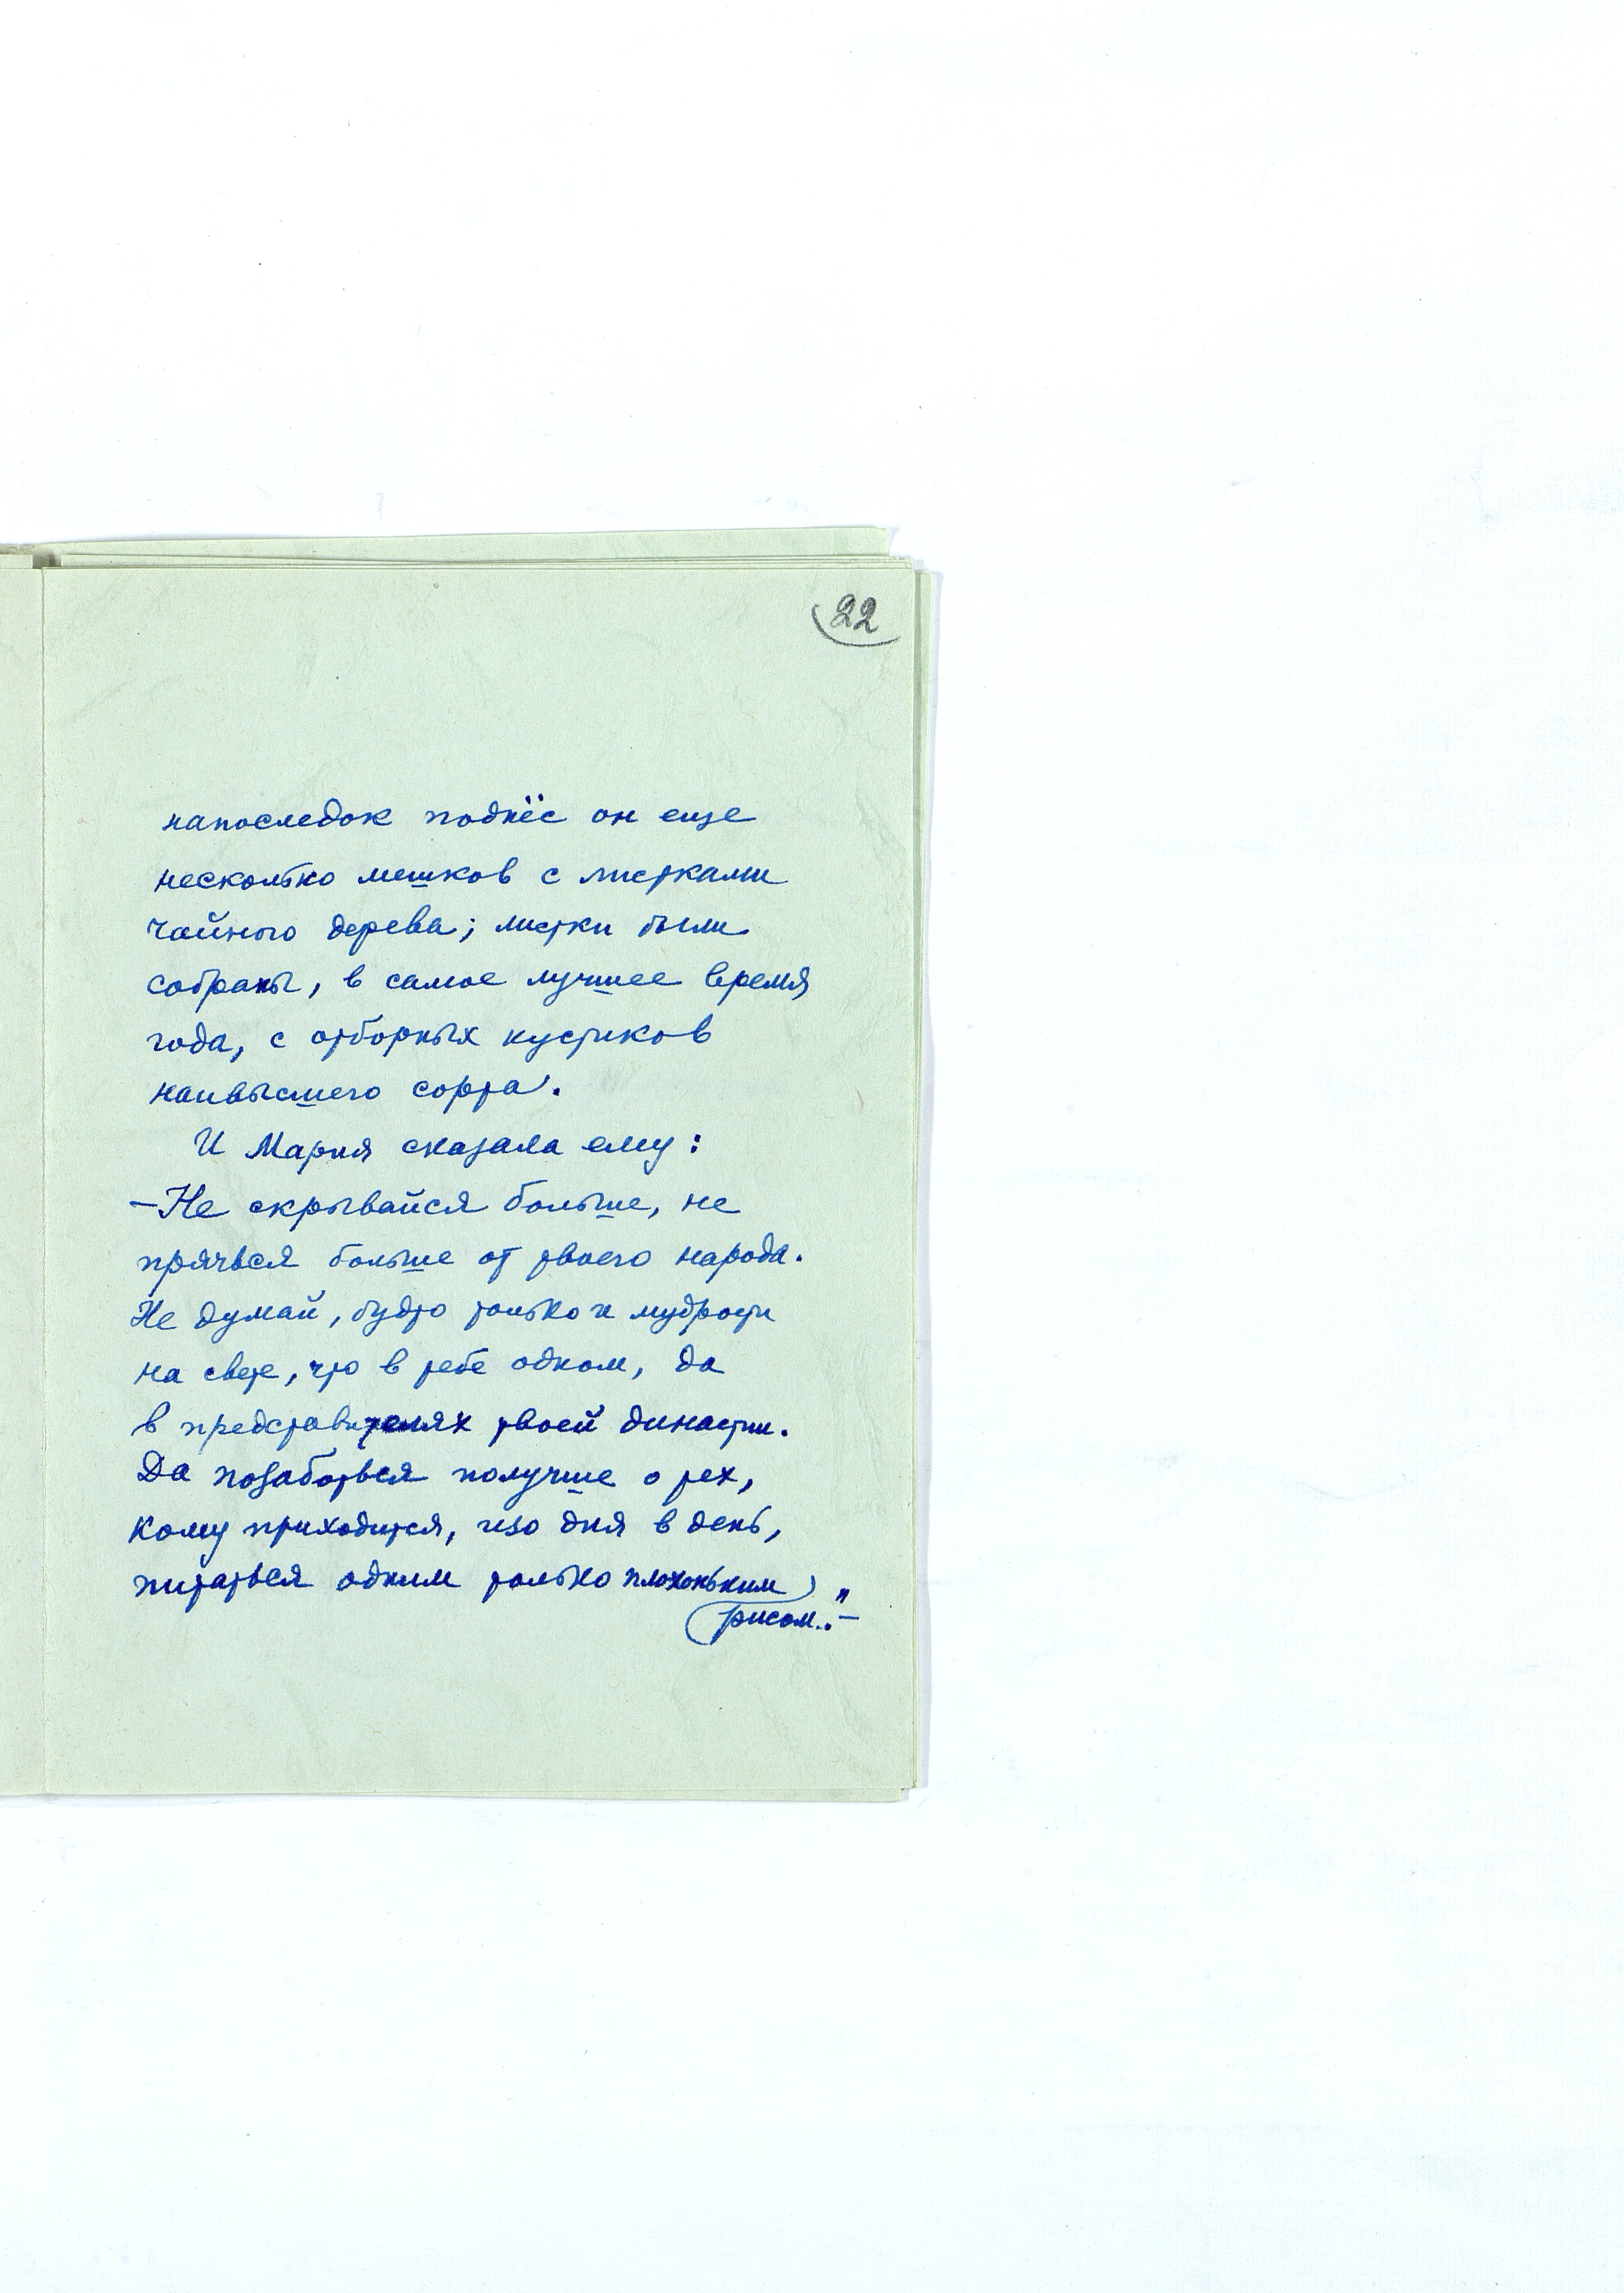 22
напоследок поднёс он еще
несколько мешков с листками
чайного дерева; листки были
собраны, в самое лучшее время
года, с отборных кустиков
наивысшего сорта.
И Мария сказала ему:
—Не скрывайся больше, не
прячься больше от твоего народа.
Не думай, будто только и мудрости
на свете, что в тебе одном, да
в представителях твоей династии.
Да позаботься получше о тех,
кому приходится, изо дня в день,
питаться одним только плохоньким
рисом..."—